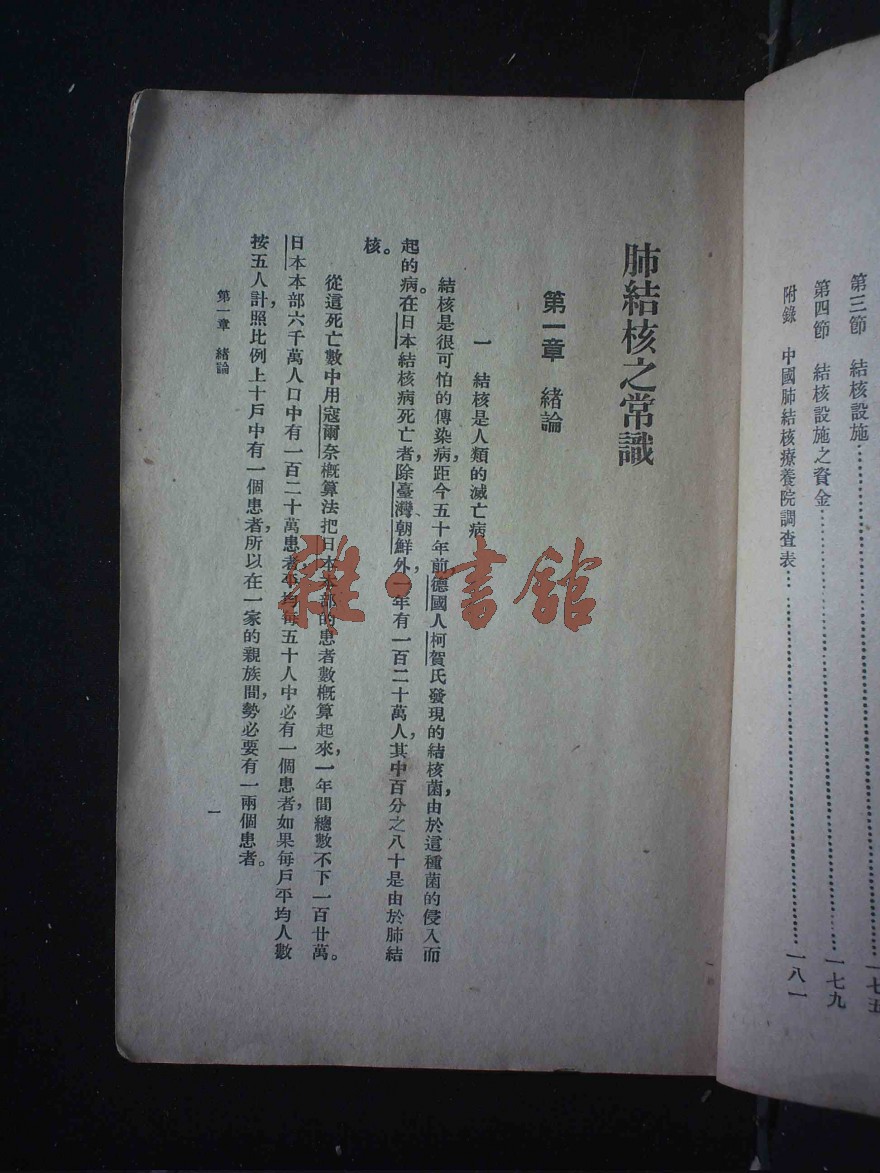 第三節　結核設施……………一七五
第四節　結核設施之資金……………一七九
附錄　中國肺結核療養院調查表……………一八一
肺結核之常識
第一章　緒論
一　結核是人類的滅亡病
結核是很可怕的傳染病，距今五十年前，德國人柯賀氏發現的結核菌，由於這種菌的侵入而
起的病。在日本結核病死亡者，除臺灣、朝鮮外，一年有一百二十萬人，其中百分之八十是由於肺結
核。
從這死亡數中用寇爾奈概算法把日本本部的患者數概算起來，一年間總數不下一百廿萬。
日本本部六千萬人口中有一百二十萬患者，平均每五十人中必有一個患者，如果每戶平均人數
按五人計，照比例上十戶中有一個患者，所以在一家的親族間，勢必要有一兩個患者。
第一章　緒論
一
雜·書館